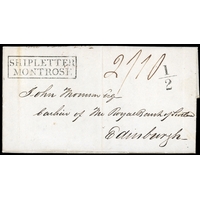 SHIPLETTER
MONTROSE
2/10
1/2
John Thomson Esq
Cashier of The Royal Bank of
Edinburgh